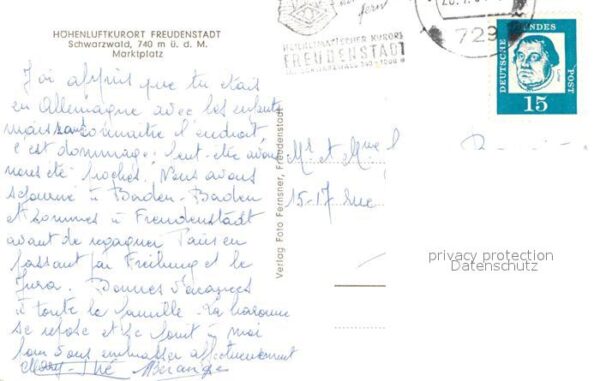 HÖHENLUFTKURORT FREUDENSTADT
Schwarzwald, 740 m ü. d. M.
Marktplatz
J'ai appris que tu étais
en Allemagne avec les enfants
mais sans connaître l'endroit
c'est dommage; peut-être avons
nous été proches. Nous avons
séjourné à Baden-Baden
et sommes à Freudenstadt
avant de regagner Paris en
passant par Freiburg et le
Jura. Bonnes vacances
à toute la famille. La baronne
se repose et se joint à moi
pour vous embrasser affectueusement
Bérangère
Verlag Foto Fernsner, Freudenstadt
HEILKLIMATISCHER KURORT
FREUDENSTADT
729
DEUTSCHE BUNDESPOST
15
Mr et Mme
15-17 Rue
privacy protection
Datenschutz